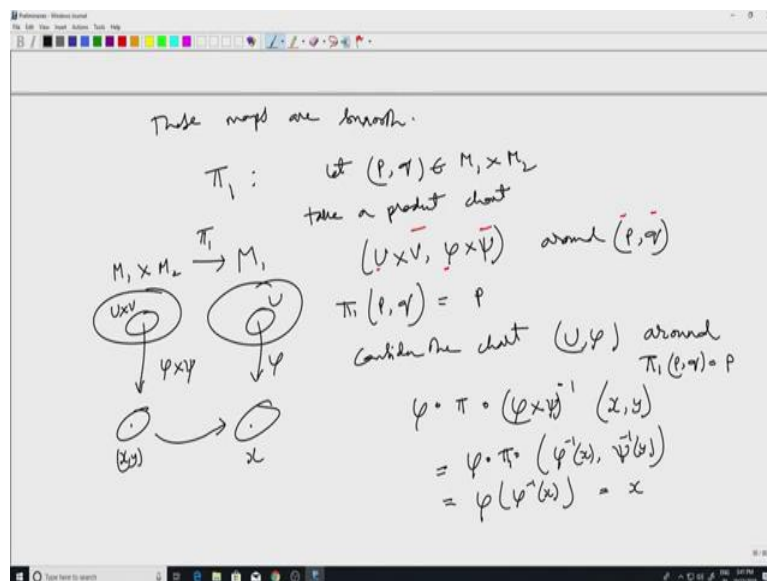 Preliminaries - Windows Journal
File Edit View Insert Actions Tools Help
These maps are smooth.
π₁ : Let (p, q) ∈ M₁ × M₂
take a product chart
(U×V, φ×ψ) around (p, q)
M₁ × M₂ π₁→ M₁
U×V U
π₁(p, q) = p
Consider the chart (U, φ) around
π₁(p, q) = p
φ×ψ φ
φ ∘ π ∘ (φ×ψ)⁻¹ (x, y)
= φ ∘ π₁ ∘ (φ⁻¹(x), ψ⁻¹(y))
(x,y) x
= φ(φ⁻¹(x)) = x
Type here to search
ENG 5:41 PM